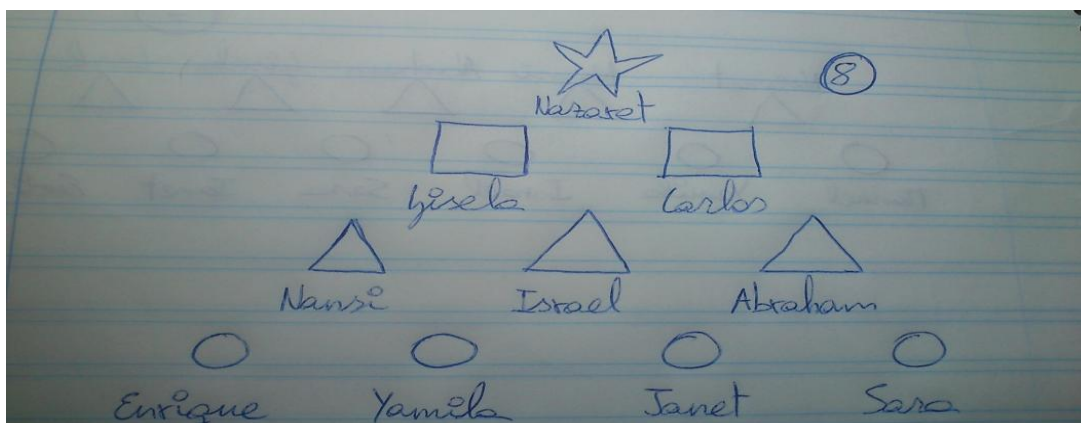 8
Nazaret
Gisela Carlos
Nansi Israel Abraham
Enrique Yamila Janet Sara